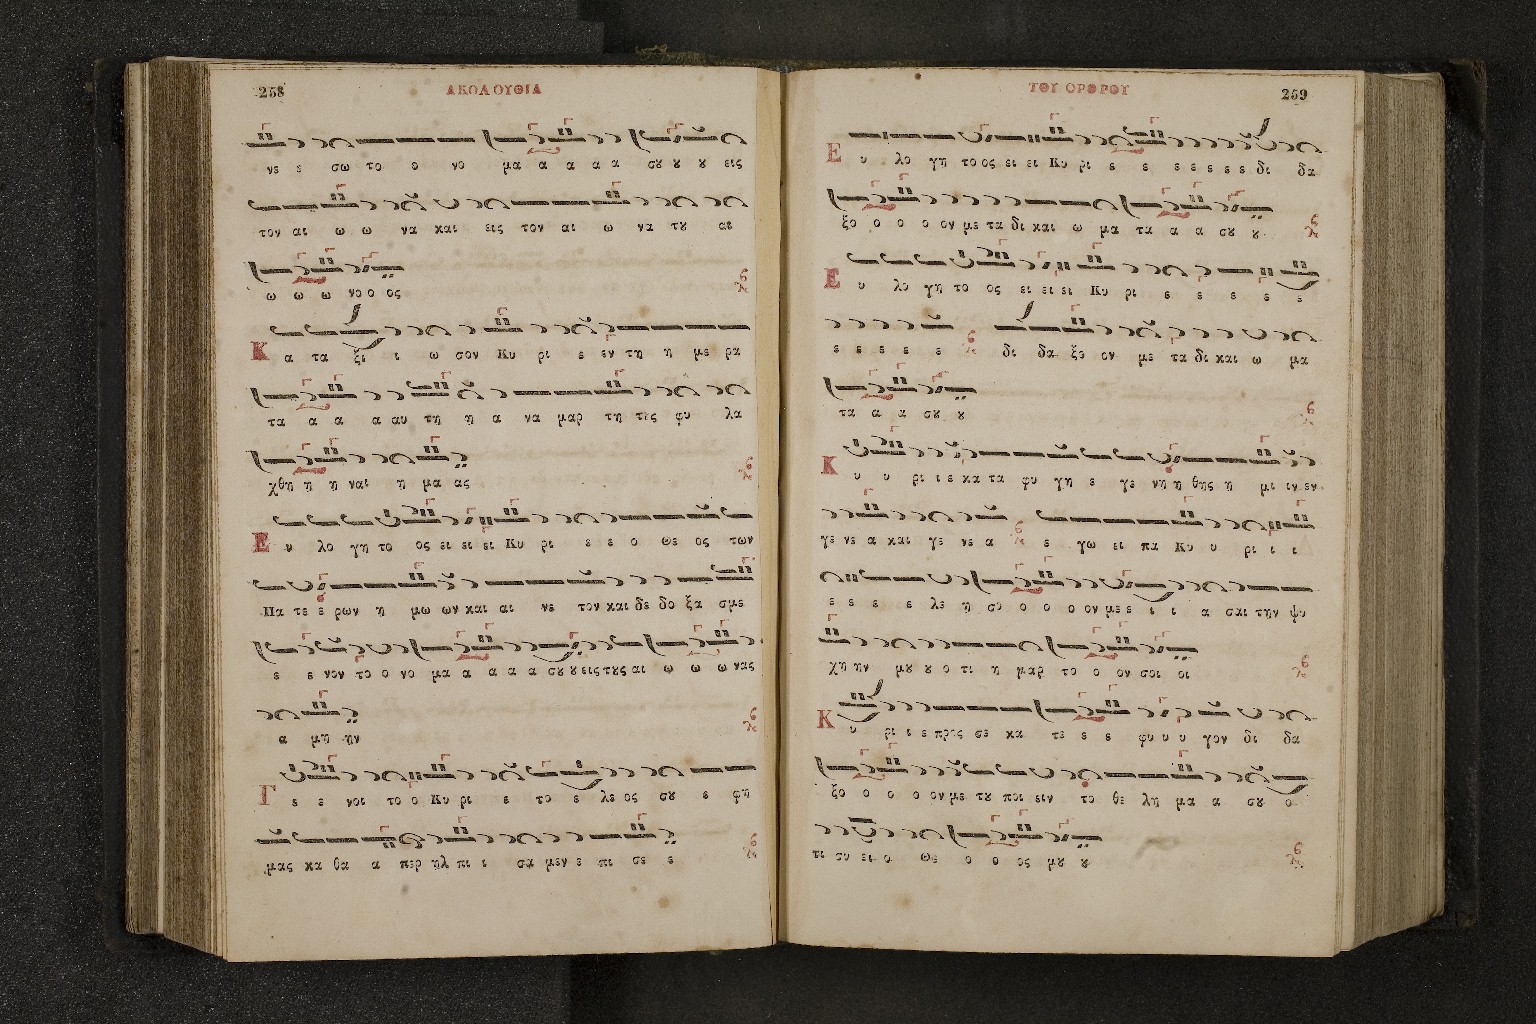 258 ΑΚΟΛΟΥΘΙΑ
νε ε σω το ο νο μα α α α α σȣ ȣ ȣ εις
τον αι ω ω να και εις τον αι ω να τȣ αι
ω ω ω νο ο ος
Κ α τα ξι ι ω σον Κυ ρι ε εν τη η με ρα
τα α α α αυ τη η α να μαρ τη τες φυ λα
χθη η η ναι η μα ας
Ε υ λο γη το ος ει ει ει Κυ ρι ε ε ο Θε ος των
Πα τε ε ρων η μω ων και αι νε τον και δε δο ξα σμε
ε ε νον το ο νο μα α α α α σȣ ȣ εις τȣς αι ω ω ω νας
α μη ην
Γ ε ε νοι το ο Κυ ρι ε το ε λε ος σȣ ε φη
μας κα θα α περ ηλ πι ι σα μεν ε πι σε ε
ΤΟΥ ΟΡΘΡΟΥ 259
Ε υ λο γη το ος ει ει Κυ ρι ε ε ε ε ε ε ε δι δα
ξο ο ο ο ον με τα δι και ω μα τα α α σȣ ȣ
Ε υ λο γη το ος ει ει ει Κυ ρι ε ε ε ε ε ε
ε ε ε ε ε δι δα ξο ον με τα δι και ω μα
τα α α σȣ ȣ
Κ υ υ ρι ι ε κα τα φυ γη ε γε νη η θης η μι ιν εν
γε νε α και γε νε α ε γω ει πα Κυ υ ρι ι ι
ε ε ε ε λε η σο ο ο ο ον με ε ι ι α σαι την ψυ
χη ην μȣ ȣ ο τι η μαρ το ο ον σοι οι
Κ υ ρι ι ε προς σε κα τε ε ε φυ υ υ γον δι δα
ξο ο ο ο ον με τȣ ποι ειν το θε λη μα α σȣ ο
τι συ ει ο Θε ο ο ος μȣ ȣ